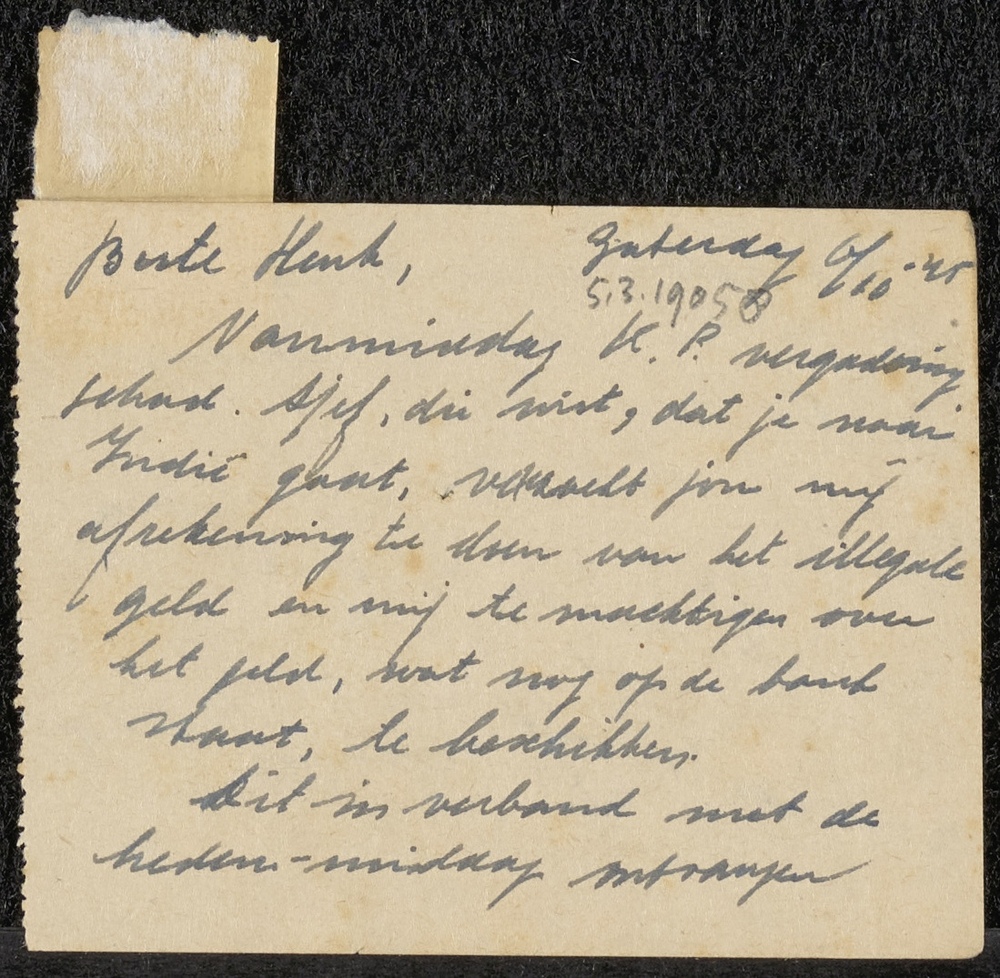 Beste Henk, Zaterdag 6/10-'45
5.3.1905
Vanmiddag K.P. vergadering
gehad. Sjef, die wist, dat je naar
Indië gaat, verzocht jou mij
afrekening te doen van het illegale
geld en mij te machtigen over
het geld, wat nog op de bank
staat, te beschikken.
Dit in verband met de
heden-middag ontvangen